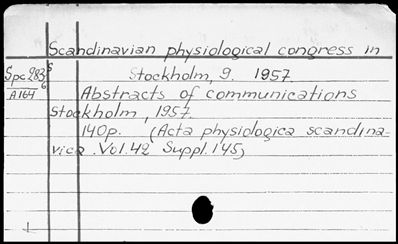 Scandinavian physiological congress in
Stockholm, 9. 1957.
Abstracts of communications
Stockholm, 1957.
140p. (Acta physiologica scandina-
vica. Vol. 42 Suppl. 145)
Spc 283
A164